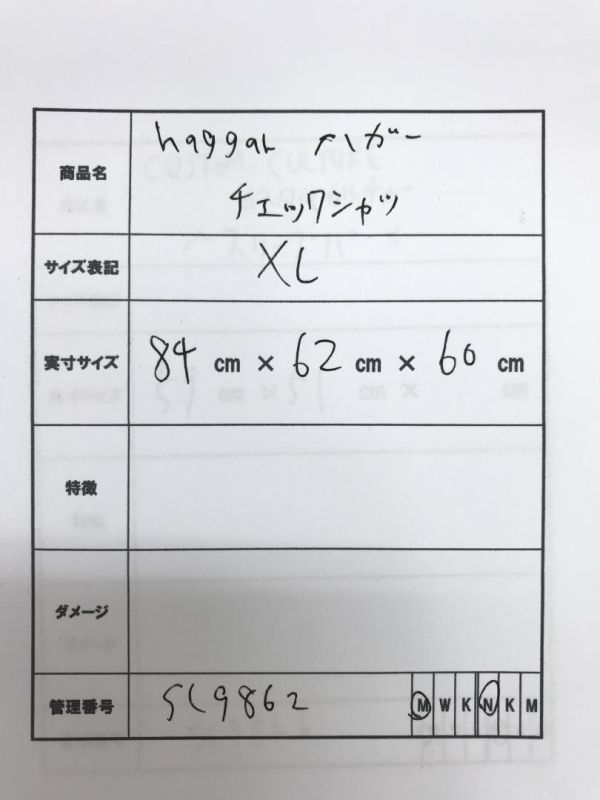 商品名
haggar ハガー
チェックシャツ
サイズ表記 XL
実寸サイズ 84 cm × 62 cm × 60 cm
特徴
ダメージ
管理番号 SC9862 M W K N K M